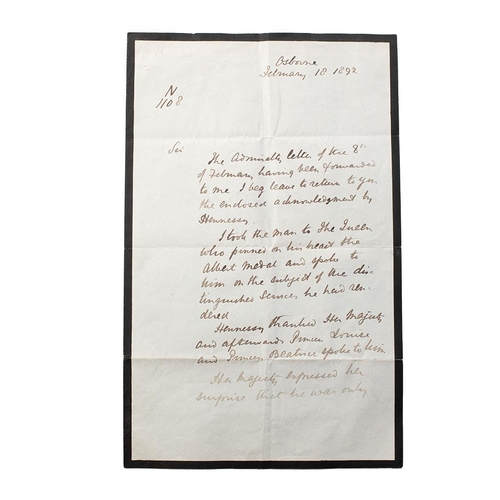 Osborne
February 18 1892
N
1108
Sir
The Admiralty letter of the 8th
of February having been forwarded
to me I beg leave to return to you
the enclosed acknowledgment by
Hennessy.
I took the man to The Queen
who pinned on his breast the
Albert Medal and spoke to
him on the subject of the dis-
tinguished services he had ren-
dered
Hennessy thanked Her Majesty
and afterwards Princess Louise
and Princess Beatrice spoke to him
Her Majesty expressed her
surprise that he was only